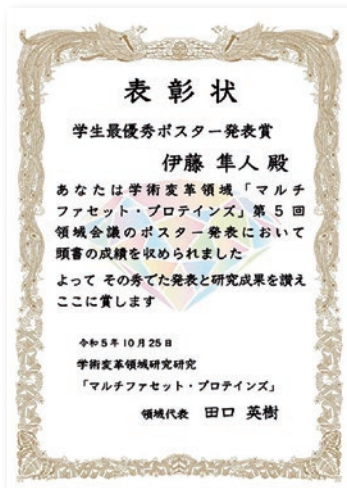 表彰状
学生最優秀ポスター発表賞
伊藤 隼人 殿
あなたは学術変革領域「マルチ
ファセット・プロテインズ」第 5 回
領域会議のポスター発表において
頭書の成績を収められました
よって その秀でた発表と研究成果を讃え
ここに賞します
令和5年10月25日
学術変革領域研究研究
「マルチファセット・プロテインズ」
領域代表 田口 英樹